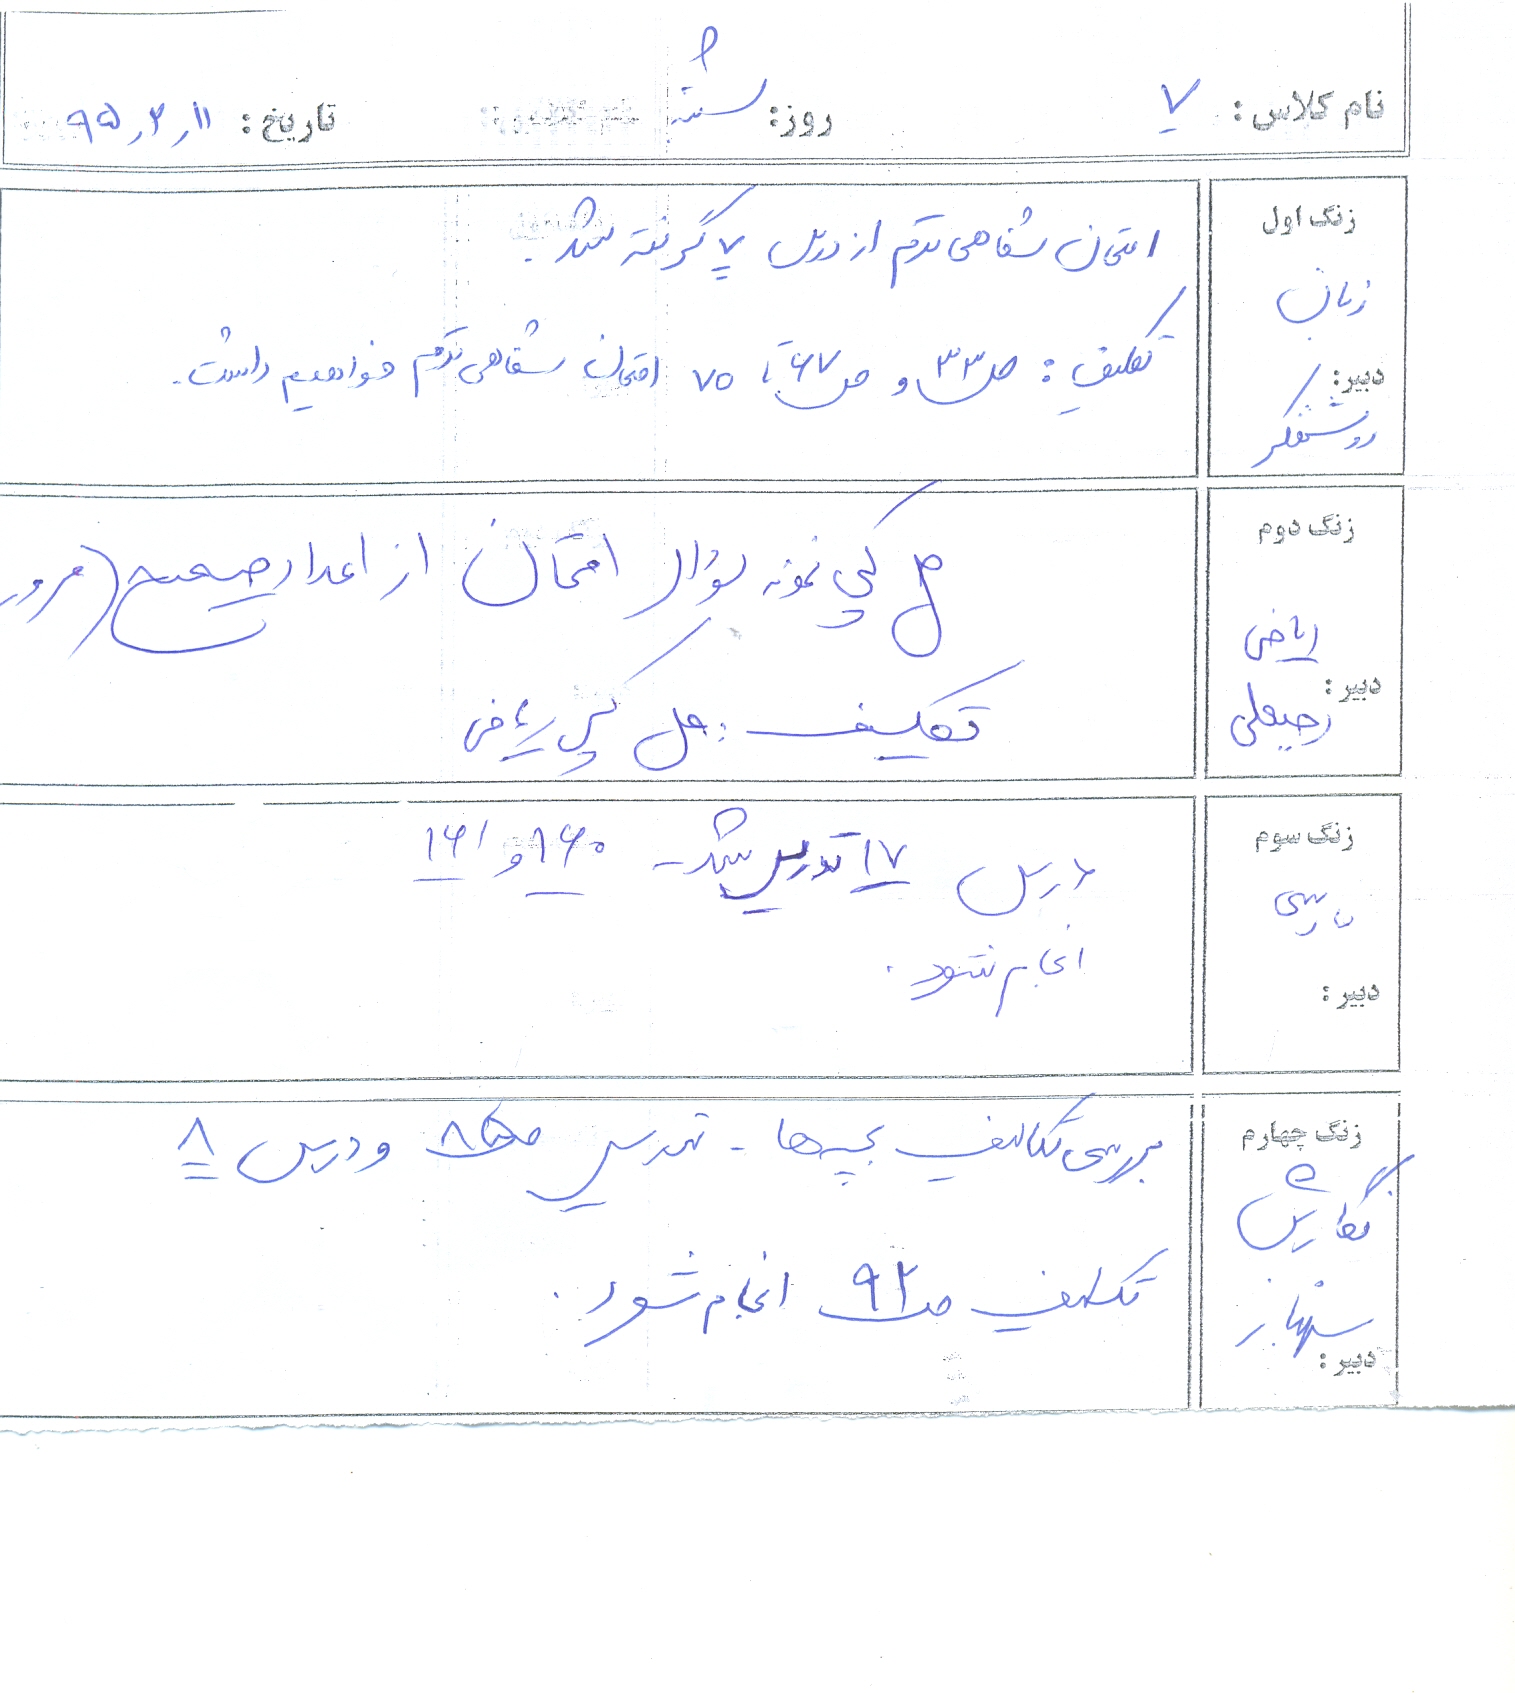 نام کلاس : ۷ روز: شنبه تاریخ : ۹۵٫۲٫۱۱
زنگ اول
زبان
دبیر:
روشنفکر
امتحان شفاهی ترم از درس ۷ گرفته شد.
تکلیف : ص ۳۳ و ص ۶۷ تا ۷۵ امتحان شفاهی ترم خواهیم داشت.
زنگ دوم
ریاضی
دبیر :
رجبعلی
حل کپی نمونه سؤال امتحان از اعداد صحیح (مرور
تکلیف : حل کپی ریاضی
زنگ سوم
فارسی
دبیر :
درس ۱۷ تدریس شد - ۱۶۰ و ۱۶۱
انجام شود.
زنگ چهارم
نگارش
دبیر :
بررسی تکالیف بچه‌ها - تدریس و درس ۸
تکلیف ص ۹۲ انجام شود.